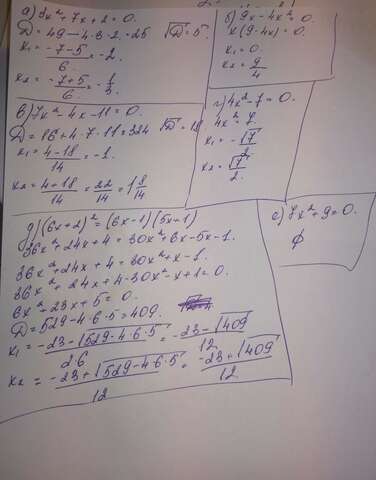 а) 3x² + 7x + 2 = 0.
D = 49 - 4·3·2 = 25 √D = 5.
x₁ = (-7-5)/6 = -2.
x₂ = (-7+5)/6 = -1/3
б) 9x - 4x² = 0.
x(9-4x) = 0.
x₁ = 0
x₂ = 9/4
в) 7x² - 4x - 11 = 0.
D = 16 + 4·7·11 = 324 √D = 18
x₁ = (4-18)/14 = -1.
x₂ = (4+18)/14 = 22/14 = 1 8/14
г) 4x² - 7 = 0.
4x² = 7.
x₁ = -√7/2
x₂ = √7/2.
д) (6x+2)² = (6x-1)(5x+1)
36x² + 24x + 4 = 30x² + 6x - 5x - 1.
36x² + 24x + 4 = 30x² + x - 1.
36x² + 24x + 4 - 30x² - x + 1 = 0.
6x² + 23x + 5 = 0.
D = 529 - 4·6·5 = 409.
x₁ = (-23 - √529-4·6·5)/2·6 = (-23 - √409)/12
x₂ = (-23 + √529-4·6·5)/12 = (-23 + √409)/12
е) 7x² + 9 = 0.
∅